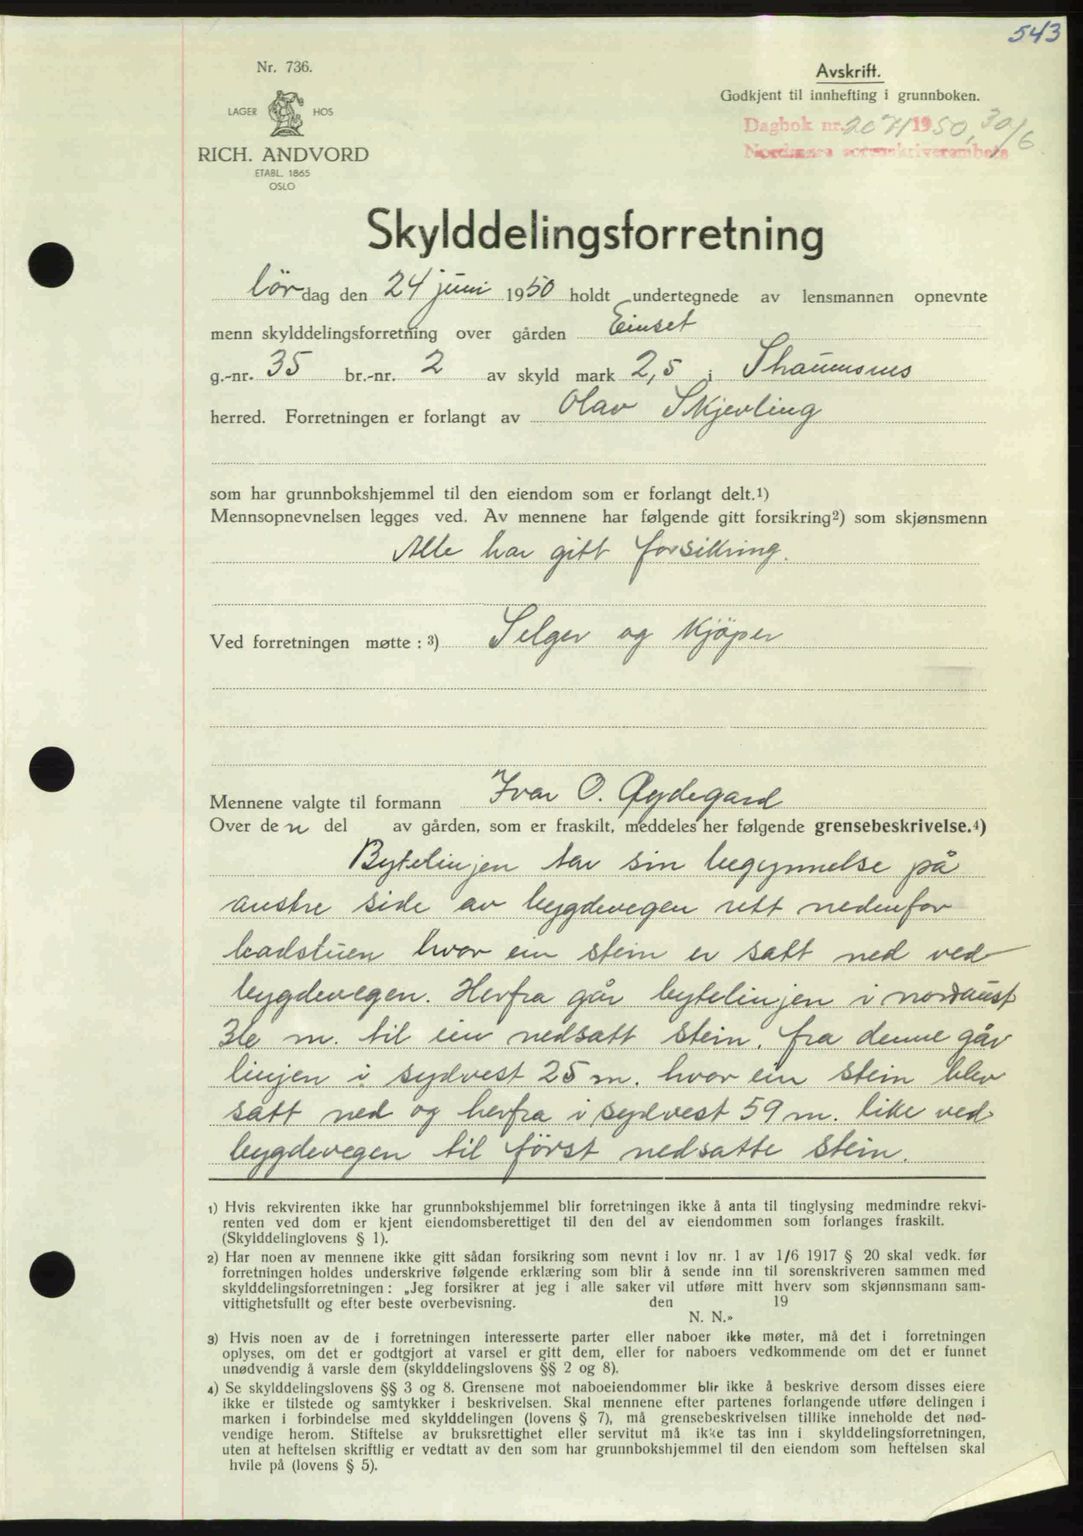 543
Nr. 736.
LAGER HOS
RICH. ANDVORD
ETABL. 1865
OSLO
Avskrift.
Godkjent til innhefting i grunnboken.
Dagbok nr. 2071 1950, 30/6
Nordmøre sorenskriverembete
Skylddelingsforretning
lördag den 24 juni 1950 holdt undertegnede av lensmannen opnevnte
menn skylddelingsforretning over gården Einset
g.-nr. 35 br.-nr. 2 av skyld mark 2,5 i
herred. Forretningen er forlangt av Olav Skjevling
som har grunnbokshjemmel til den eiendom som er forlangt delt.1)
Mennsopnevnelsen legges ved. Av mennene har følgende gitt forsikring2) som skjønsmenn
Alle har gitt forsikring.
Ved forretningen møtte : 3) Selger og kjöper
Mennene valgte til formann Ivar O. Øydegard
Over den del av gården, som er fraskilt, meddeles her følgende grensebeskrivelse.4)
Bytelinjen tar sin begynnelse på
austre side av bygdevegen rett nedenfor
badstuen hvor ein stein er satt ned ved
bygdevegen. Herfra går bytelinjen i nordaust
36 m. til ein nedsatt stein. fra denne går
linjen i sydvest 25 m. hvor ein stein blev
satt ned og herfra i sydvest 59 m. like ved
bygdevegen til först nedsatte stein.
1) Hvis rekvirenten ikke har grunnbokshjemmel blir forretningen ikke å anta til tinglysing medmindre rekvi-
renten ved dom er kjent eiendomsberettiget til den del av eiendommen som forlanges fraskilt.
(Skylddelinglovens § 1).
2) Har noen av mennene ikke gitt sådan forsikring som nevnt i lov nr. 1 av 1/6 1917 § 20 skal vedk. før
forretningen holdes underskrive følgende erklæring som blir å sende inn til sorenskriveren sammen med
skylddelingsforretningen : „Jeg forsikrer at jeg i alle saker vil utføre mitt hverv som skjønnsmann sam-
vittighetsfullt og efter beste overbevisning. den 19
N. N.»
3) Hvis noen av de i forretningen interesserte parter eller naboer ikke møter, må det i forretningen
oplyses, om det er godtgjort at varsel er gitt dem, eller for naboers vedkommende om det er funnet
unødvendig å varsle dem (skylddelingslovens §§ 2 og 8).
4) Se skylddelingslovens §§ 3 og 8. Grensene mot naboeiendommer blir ikke å beskrive dersom disses eiere
ikke er tilstede og samtykker i beskrivelsen. Skal mennene efter partenes forlangende utføre delingen i
marken i forbindelse med skylddelingen (lovens § 7), må grensebeskrivelsen tillike inneholde det nød-
vendige herom. Stiftelse av bruksrettighet eller servitut må ikke tas inn i skylddelingsforretningen,
uten at heftelsen skriftlig er vedtatt av den som har grunnbokshjemmel til den eiendom som heftelsen skal
hvile på (lovens § 5).